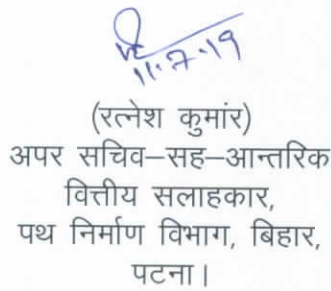 11.7.19
(रत्नेश कुमांर)
अपर सचिव–सह–आन्तरिक
वित्तीय सलाहकार,
पथ निर्माण विभाग, बिहार,
पटना।